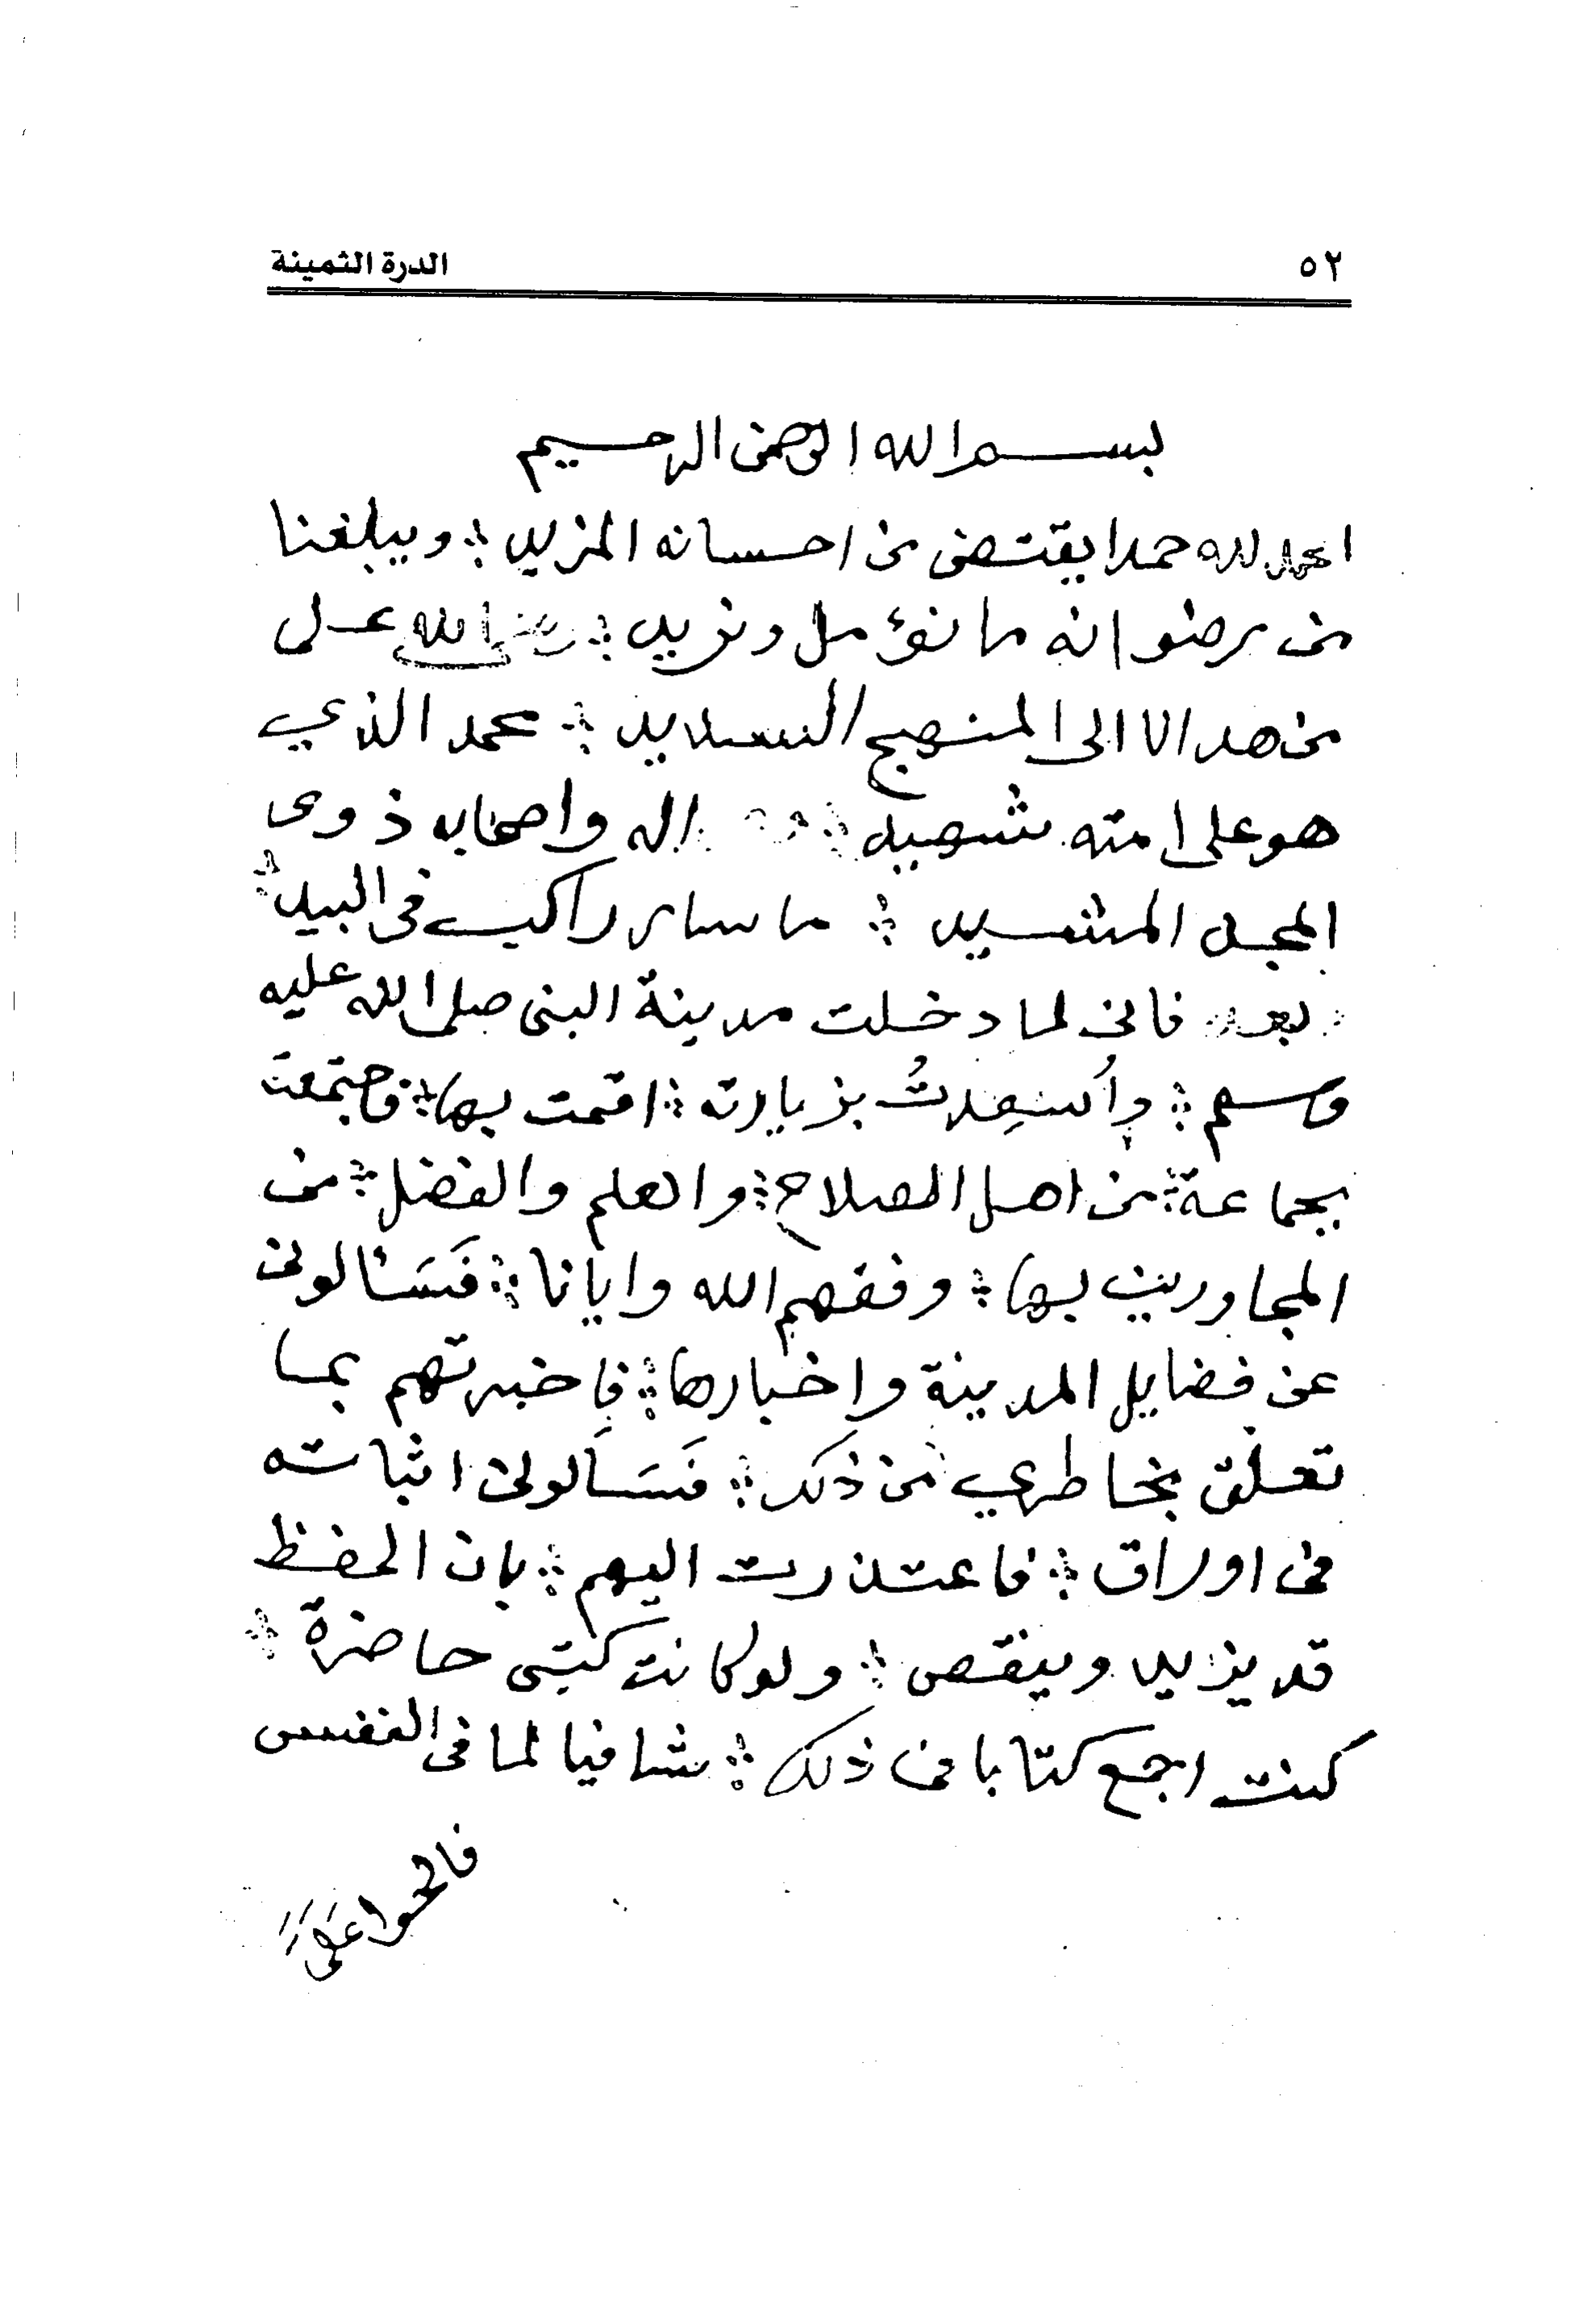 ٥٢
الدرة الثمينة
بسم الله الرحمن الرحيم
الحمد لله حمدا يقتضى من احسانه المزيد ۞ ويبلغنا
من رضوانه ما نؤمل ونريد ۞ الله على
من هدانا الى المنهج السديد ۞ محمد الذي
هو على امته شهيد ۞ اله واصحابه ذوى
المجد المشيد ۞ ما سار راكب فى البيد ۞
بعد فانى لما دخلت مدينة النبى صلى الله عليه
وسلم ۞ وأُسعِدتُ بزيارته ۞ اقمت بها ۞ فاجتمعت
بجماعة ۞ من اهل الصلاح ۞ والعلم والفضل ۞ من
المجاورين بها ۞ وفقهم الله وايانا ۞ فَسَئالونى
عن فضايل المدينة واخبارها ۞ فاخبرتهم بما
تعلق بخاطري من ذلك ۞ فَسَألونى اثباته
فى اوراق ۞ فاعتذرت اليهم ۞ بان الحفظ
قد يزيد وينقص ۞ ولو كانت كتبى حاضرة ۞
كنت اجمع كتابا فى ذلك ۞ شافيا لما فى النفس
فالحوا على